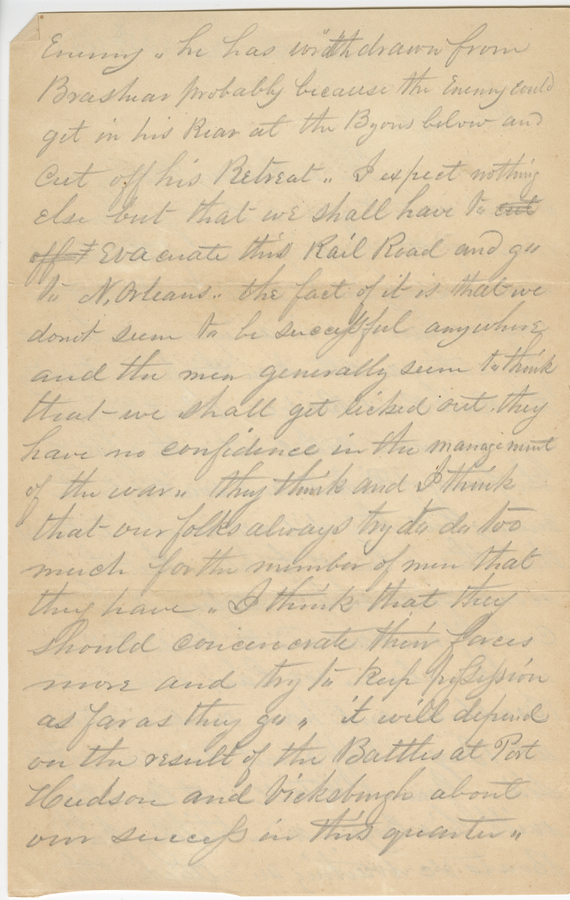 Enemy „ he has withdrawn from
Brashear probably because the Enemy could
get in his Rear at the Byous below and
Cut off his Retreat „ I expect nothing
else but that we shall have to cut
off t Evacuate this Rail Road and go
to N, Orleans „ the fact of it is that we
dont seem to be successful anywhere
and the men generally seem to think
that we shall get licked out they
have no confidence in the management
of the war „ they think and I think
that our folks always try to do too
much for the number of men that
they have „ I think that they
Should concencrate their forces
more and try to keep possession
as far as they go „ it will depend
on the result of the Battles at Port
Hudson and Vicksburgh about
our success in this quarter „